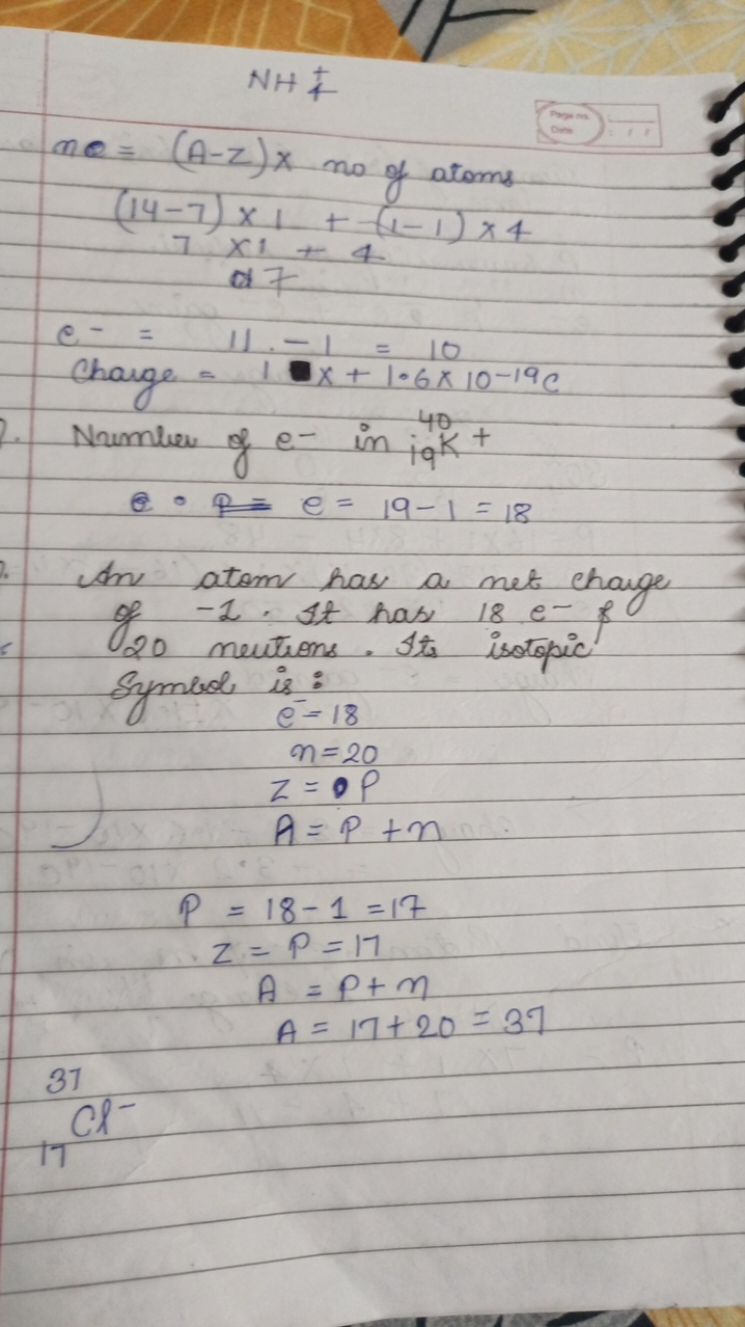 NH4+
Page no.
Date : / /
ne = (A-Z)x no of atoms
(14-7) x 1 + (1-1) x 4
7 x1 + 4
7
e- = 11 - 1 = 10
Charge = 1 x + 1.6 x 10-19c
Number of e- in 40 19K+
e = 19-1 = 18
An atom has a net charge
of -1. It has 18 e- &
20 neutrons. Its isotopic
Symbol is :
e- = 18
n = 20
Z = P
A = P + n
P = 18 - 1 = 17
Z = P = 17
A = P + n
A = 17 + 20 = 37
37
Cl-
17